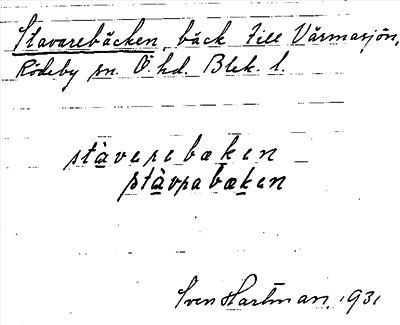 Stavarebäcken, bäck till Värmasjön,
Rödeby sn. Ö. hd. Blek. l.
stàverebæken
stàvrabæken
Sven Hartman 1931